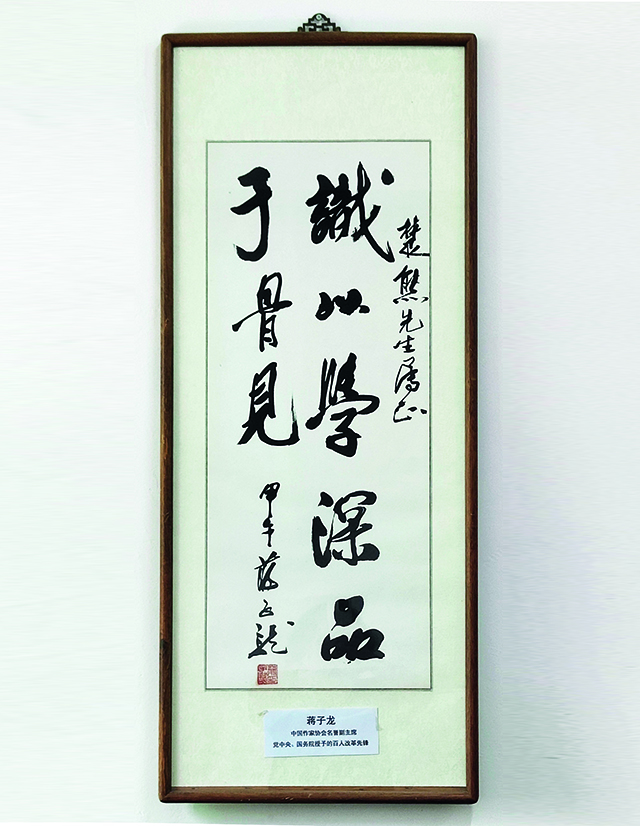 楚熊先生正
識以學深品
于骨見
甲午蒋子龍
蒋子龙
中国作家协会名誉副主席
党中央、国务院授予的百人改革先锋